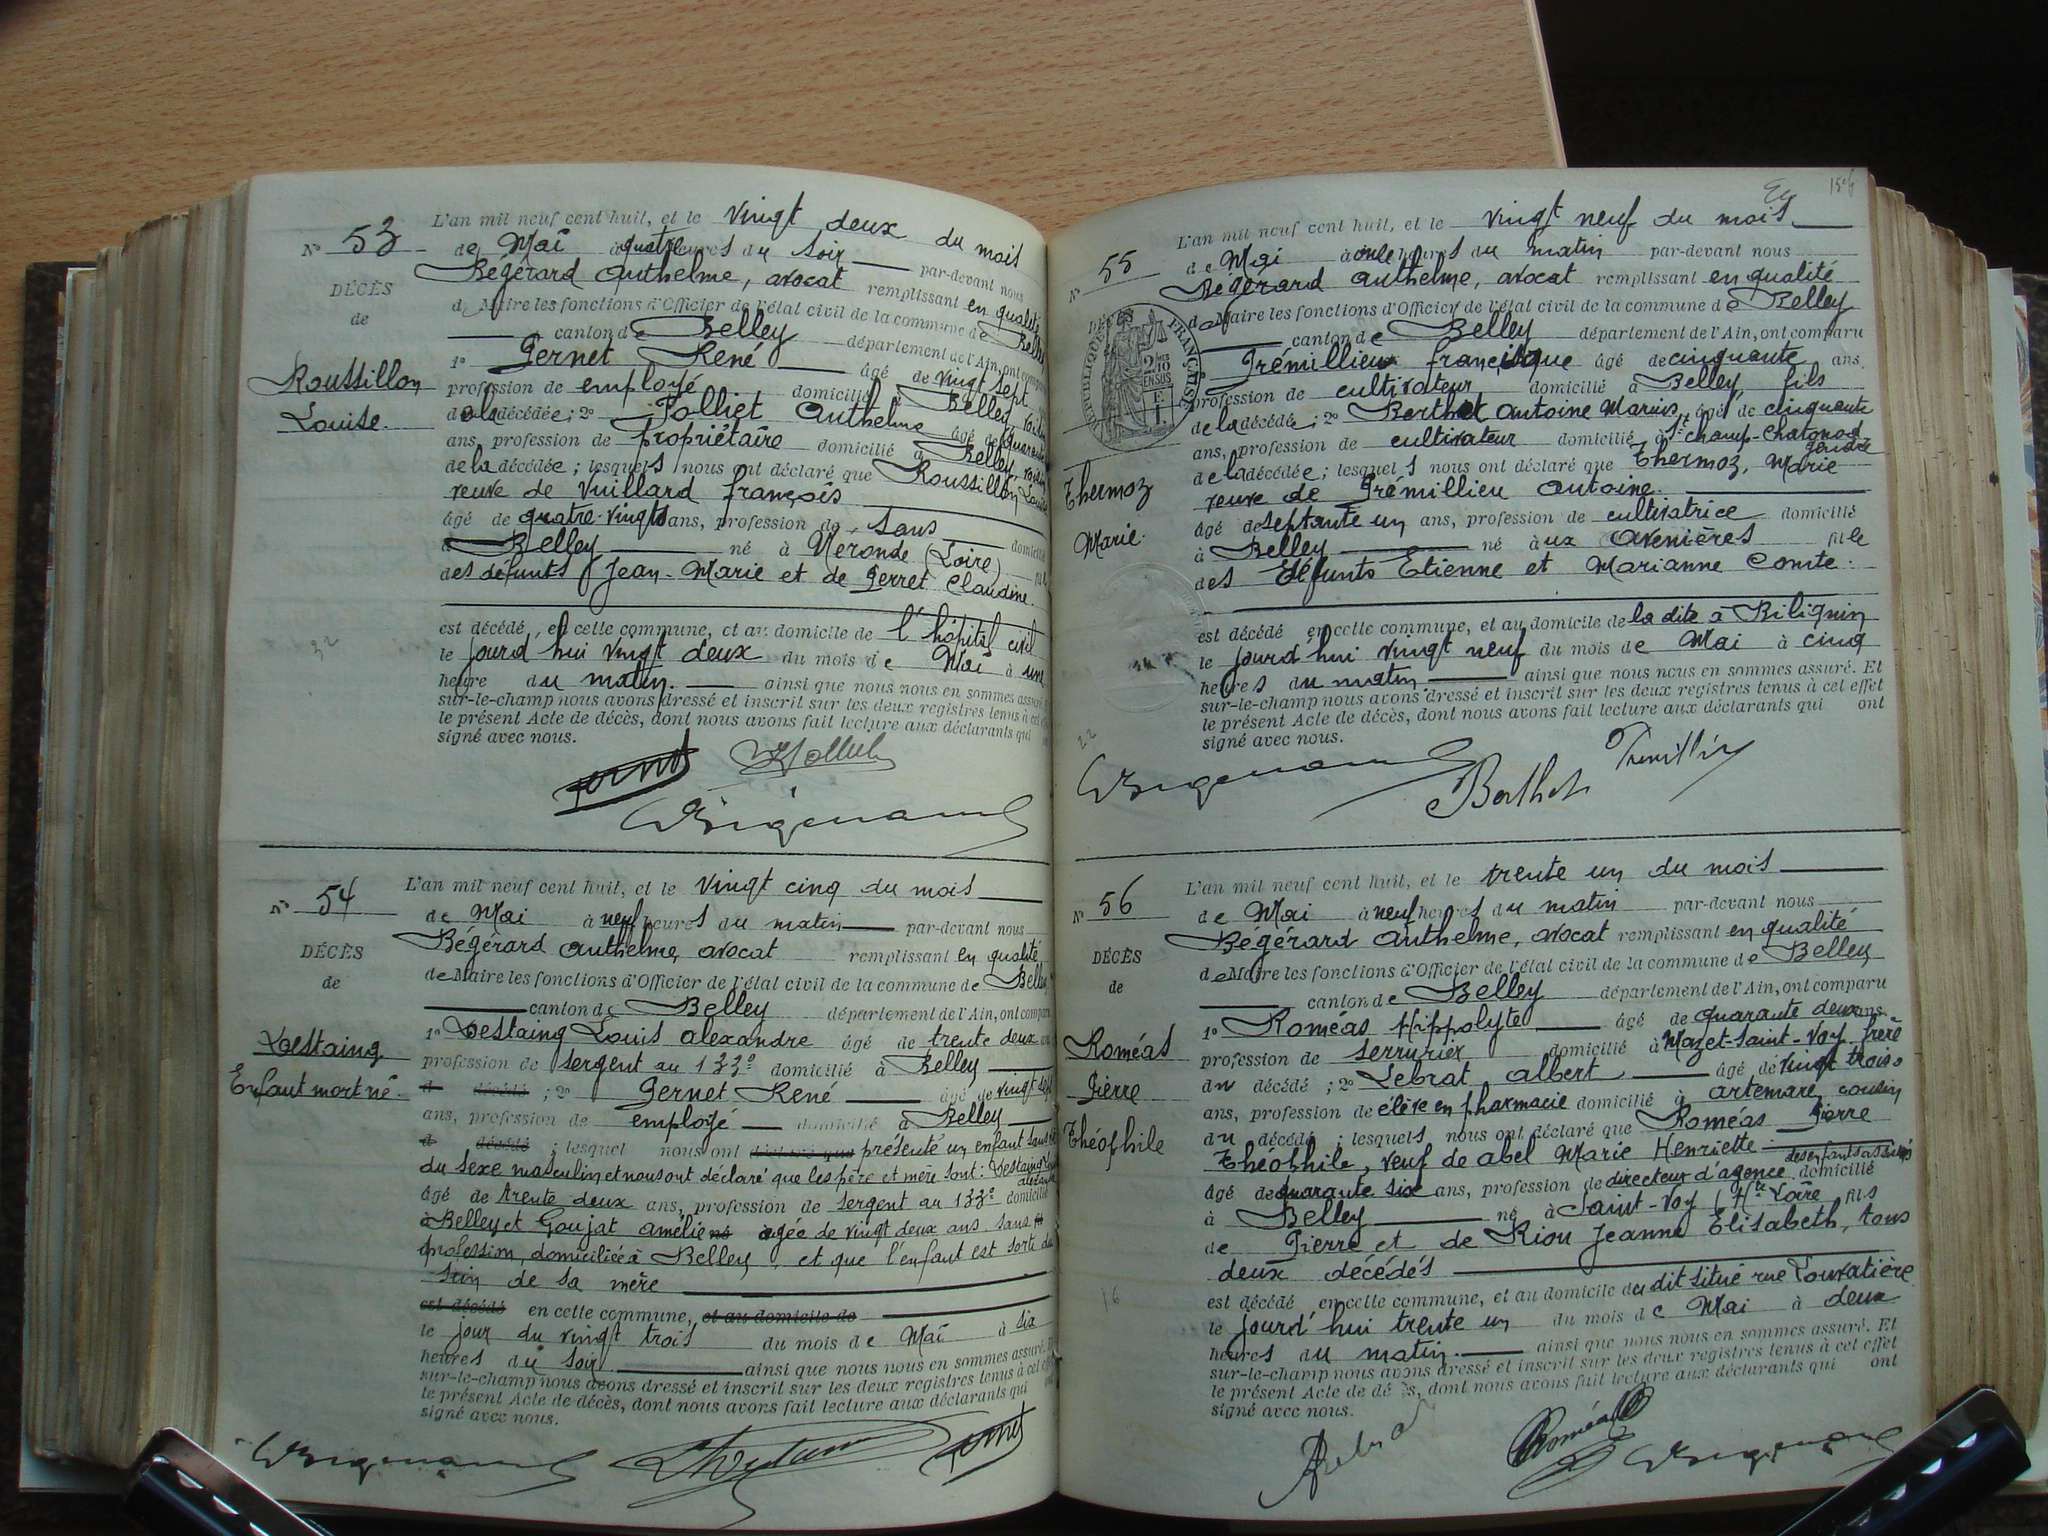 N° 53
DÉCÈS
de
Roussillon
Louise.
L'an mil neuf cent huit, et le vingt deux du mois
de Mai à quatre heures du soir par-devant nous
Bégérard Anthelme, avocat remplissant en qualité
de Maire les fonctions d'Officier de l'état civil de la commune de Belley
canton de Belley département de l'Ain, ont comparu
1° Pernet René âgé de vingt sept
profession de employé domicilié à Belley, voisin
de la décédée; 2° Polliet Anthelme âgé de quarante
ans, profession de propriétaire domicilié à Belley, voisin
de la décédée; lesquels nous ont déclaré que Roussillon Louise
veuve de Vuillard françois
âgé de quatre-vingts ans, profession de sans domicilié
à Belley né à Néronde (Loire)
des défunts Jean-Marie et de Perret Claudine.
est décédé, en cette commune, et au domicile de l'hôpital civil
le jourd'hui vingt deux du mois de Mai à une
heure du matin. ainsi que nous nous en sommes assuré.
sur-le-champ nous avons dressé et inscrit sur les deux registres tenus à cet
le présent Acte de décès, dont nous avons fait lecture aux déclarants qui
signé avec nous.
N° 54
DÉCÈS
de
Destaing
Enfant mort né.
L'an mil neuf cent huit, et le vingt cinq du mois
de Mai à neuf heures du matin par-devant nous
Bégérard Anthelme, avocat remplissant en qualité
de Maire les fonctions d'Officier de l'état civil de la commune de Belley
canton de Belley département de l'Ain, ont comparu
1° Destaing Louis Alexandre âgé de trente deux
profession de sergent au 133e domicilié à Belley
d décédé; 2° Pernet René âgé de vingt sept
ans, profession de employé domicilié à Belley
d décédé; lesquel nous ont déclaré que présenté un enfant sans vie
du sexe masculin et nous ont déclaré que les père et mère sont: Destaing Louis
alexandre
âgé de trente deux ans, profession de sergent au 133e domicilié
à Belley et Goujat Amélie né agée de vingt deux ans sans
profession, domiciliée à Belley, et que l'enfant est sorti du
sein de sa mère
est décédé en cette commune, et au domicile de
le jour du vingt trois du mois de Mai à six
heures du soir ainsi que nous nous en sommes assuré.
sur-le-champ nous avons dressé et inscrit sur les deux registres tenus à cet
le présent Acte de décès, dont nous avons fait lecture aux déclarants qui
signé avec nous.
N° 55
RÉPUBLIQUE FRANÇAISE
2 DMES
10 EN SUS
Thermoz
Marie.
L'an mil neuf cent huit, et le vingt neuf du mois
de Mai à onze heures du matin par-devant nous
Bégérard Anthelme, avocat remplissant en qualité
de Maire les fonctions d'Officier de l'état civil de la commune de Belley
canton de Belley département de l'Ain, ont comparu
Trémillieu francisque âgé de cinquante ans
profession de cultivateur domicilié à Belley, fils
de la décédée; 2° Berthet Antoine Marius, âgé de cinquante
ans, profession de cultivateur domicilié à St champ-Chatonod
gendre
de la décédée; lesquels nous ont déclaré que Thermoz, Marie
veuve de Trémillieu Antoine.
âgé de septante un ans, profession de cultivatrice domicilié
à Belley né à ux Avenières fille
des défunts Etienne et Marianne Comte.
est décédé en cette commune, et au domicile de la dite à Billignin
le jourd'hui vingt neuf du mois de Mai à cinq
heures du matin. ainsi que nous nous en sommes assuré. Et
sur-le-champ nous avons dressé et inscrit sur les deux registres tenus à cet effet
le présent Acte de décès, dont nous avons fait lecture aux déclarants qui ont
signé avec nous.
Berthet
N° 56
DÉCÈS
de
Roméas
Pierre
Théophile
L'an mil neuf cent huit, et le trente un du mois
de Mai à neuf heures du matin par-devant nous
Bégérard Anthelme, avocat remplissant en qualité
de Maire les fonctions d'Officier de l'état civil de la commune de Belley
canton de Belley département de l'Ain, ont comparu
1° Roméas Hippolyte âgé de quarante deux ans
profession de serrurier domicilié à Mazet-Saint-Voy, frère
du décédé; 2° Lebrat Albert âgé de vingt trois
ans, profession de élève en pharmacie domicilié à Artemare, cousin
du décédé; lesquels nous ont déclaré que Roméas Pierre
Théophile, veuf de Abel Marie Henriette
des enfants assistés
âgé de quarante six ans, profession de directeur d'agence domicilié
à Belley né à Saint-Voy (Hte Loire fils
de Pierre et de Riou Jeanne Elisabeth, tous
deux décédés
est décédé, en cette commune, et au domicile du dit situé rue
le jourd'hui trente un du mois de Mai à deux
heures du matin. ainsi que nous nous en sommes assuré. Et
sur-le-champ nous avons dressé et inscrit sur les deux registres tenus à cet effet
le présent Acte de décès, dont nous avons fait lecture aux déclarants qui ont
signé avec nous.
Roméas